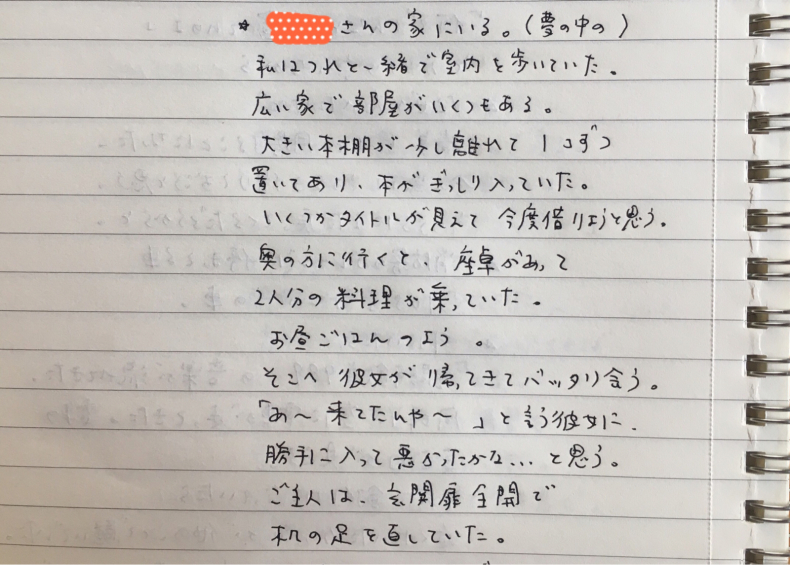 * さんの家にいる。(夢の中の)
私はつれと一緒で室内を歩いていた。
広い家で部屋がいくつもある。
大きい本棚が少し離れて1コずつ
置いてあり、本がぎっしり入っていた。
いくつかタイトルが見えて今度借りようと思う。
奥の方に行くと、座卓があって
2人分の料理が乗っていた。
お昼ごはんのよう。
そこへ彼女が帰ってきてバッタリ会う。
「あ〜来てたんや〜」と言う彼女に、
勝手に入って悪かったかな...と思う。
ご主人は、玄関扉全開で
机の足を直していた。